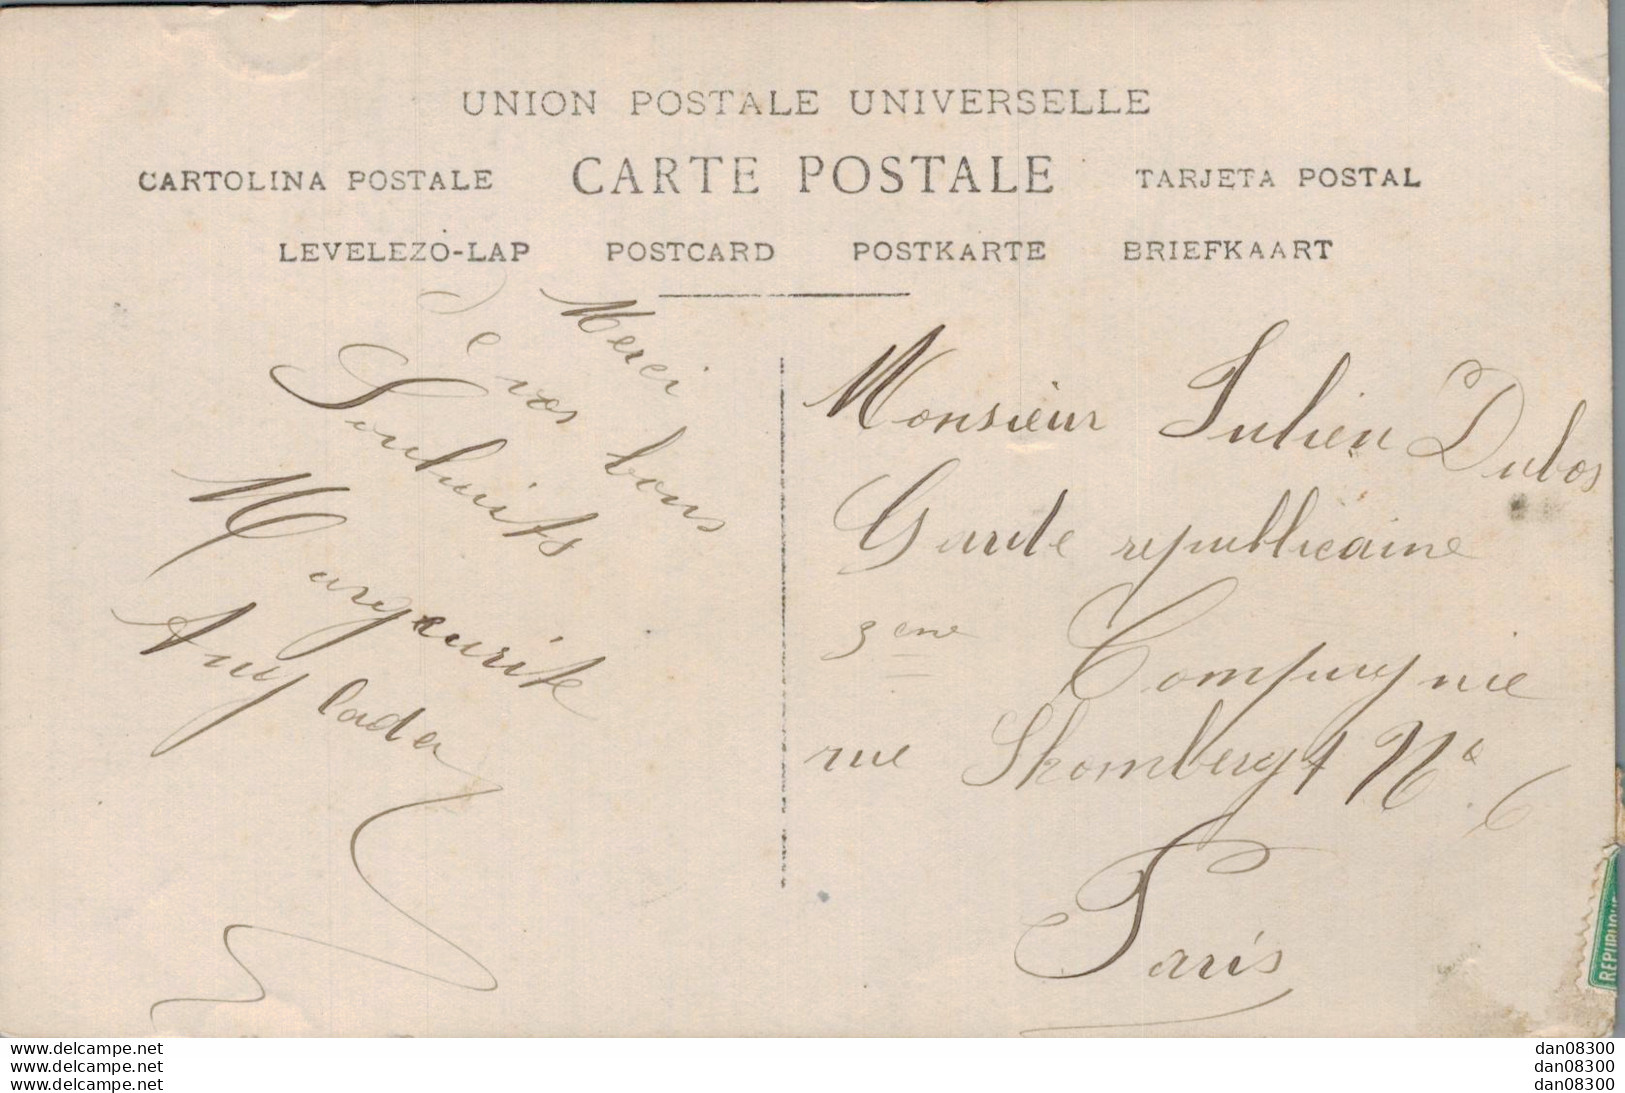 UNION POSTALE UNIVERSELLE
CARTOLINA POSTALE CARTE POSTALE TARJETA POSTAL
LEVELEZŐ-LAP POSTCARD POSTKARTE BRIEFKAART
Merci
de vos bons
Souhaits
Marguerite
Monsieur Julien Dubos
Garde republicaine
3eme Compagnie
rue Skombergt No 6
Paris
REPUBLIQUE
www.delcampe.net dan08300
www.delcampe.net dan08300
www.delcampe.net dan08300